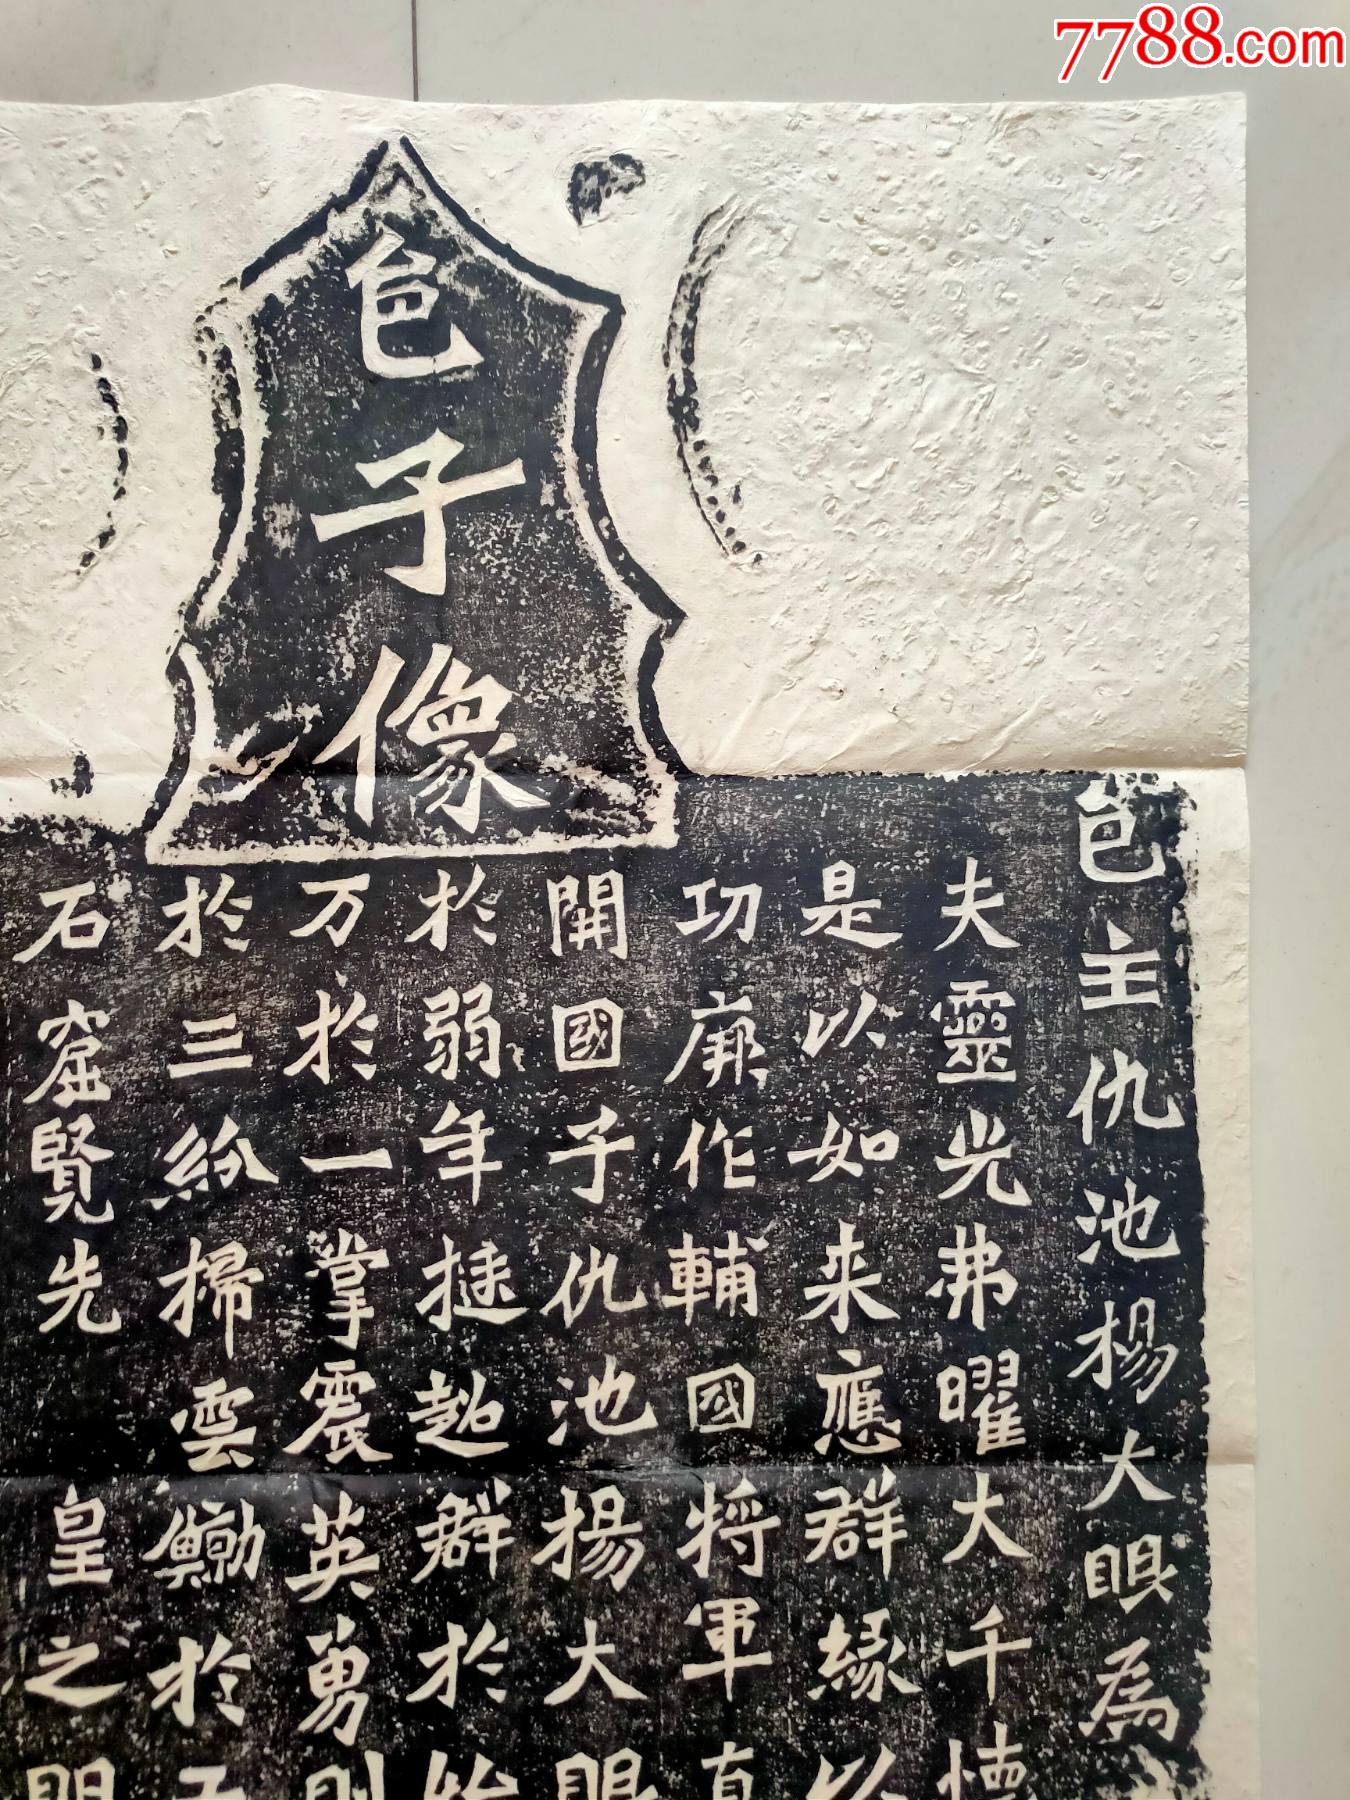 7788.com
邑子像
邑主仇池楊大眼為
夫靈光弗曜大千懷
是以如来應群緣以
功廓作輔國將軍直
開國子仇池揚大眼
於弱年挺超群於始
万於一掌震英勇則
於三紛掃雲鯨於
石窟覽先皇之明